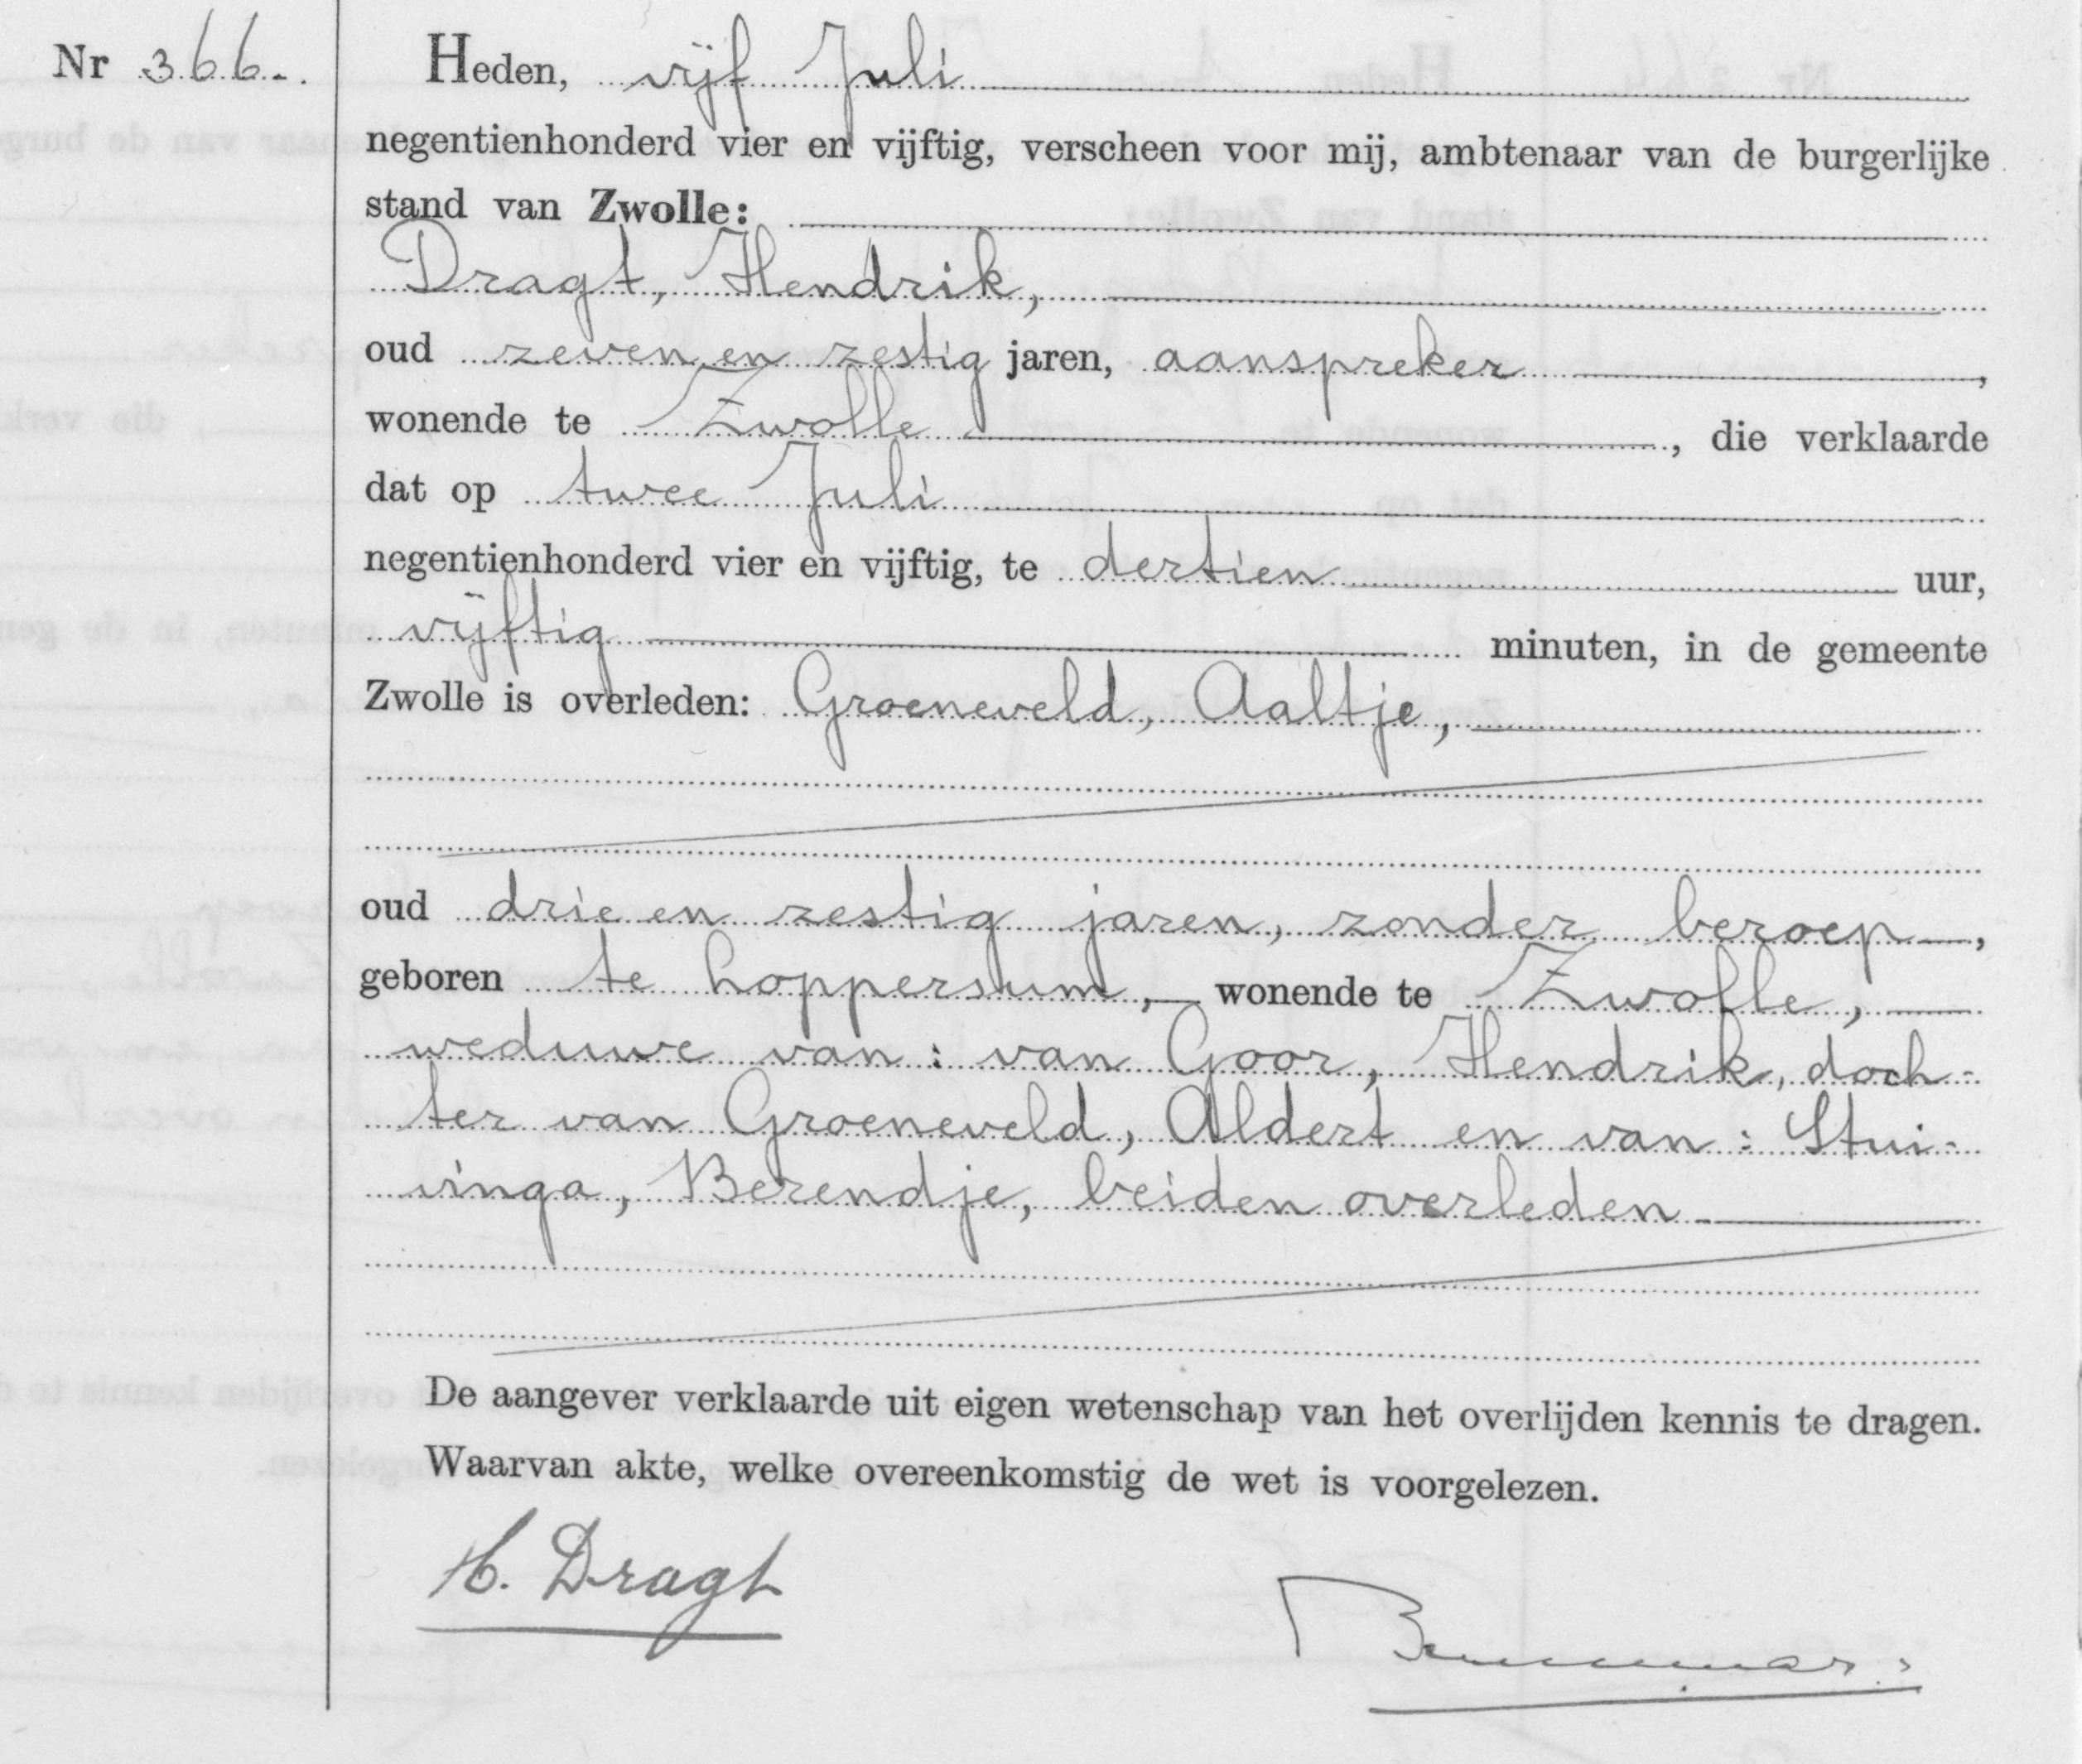 Nr 366.
Heden, vijf Juli
negentienhonderd vier en vijftig, verscheen voor mij, ambtenaar van de burgerlijke
stand van Zwolle:
Dragt, Hendrik,
oud zeven en zestig jaren, aanspreker,
wonende te Zwolle, die verklaarde
dat op twee Juli
negentienhonderd vier en vijftig, te dertien uur,
vijftig minuten, in de gemeente
Zwolle is overleden: Groeneveld, Aaltje,
oud drie en zestig jaren, zonder beroep,
geboren te hoppersum, wonende te Zwolle,
weduwe van: van Goor, Hendrik, doch-
ter van Groeneveld, Aldert en van: Stui-
vinga, Berendje, beiden overleden
De aangever verklaarde uit eigen wetenschap van het overlijden kennis te dragen.
Waarvan akte, welke overeenkomstig de wet is voorgelezen.
H. Dragt